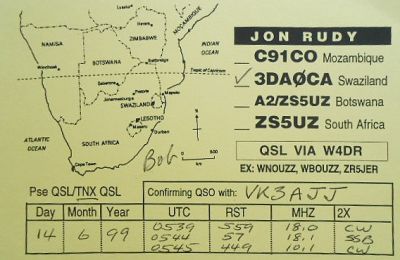 JON RUDY
C91CO Mozambique
✓ 3DAØCA Swaziland
A2/ZS5UZ Botswana
ZS5UZ South Africa
QSL VIA W4DR
EX: WN0UZZ, WB0UZZ, ZR5JER
MOZAMBIQUE
NAMIBIA
ZIMBABWE
INDIAN OCEAN
Windhoek
BOTSWANA
Tropic of Capricorn
Gaborone
Pretoria
Maputo
Johannesburg
SWAZILAND
LESOTHO
Maseru
Durban
ATLANTIC OCEAN
SOUTH AFRICA
Cape Town
0 500
Bob
Pse QSL/TNX QSL
Confirming QSO with: VK3AJJ
Day Month Year UTC RST MHZ 2X
14 6 99 0539 559 18.0 CW
0544 57 18.1 SSB
0545 449 10.1 CW